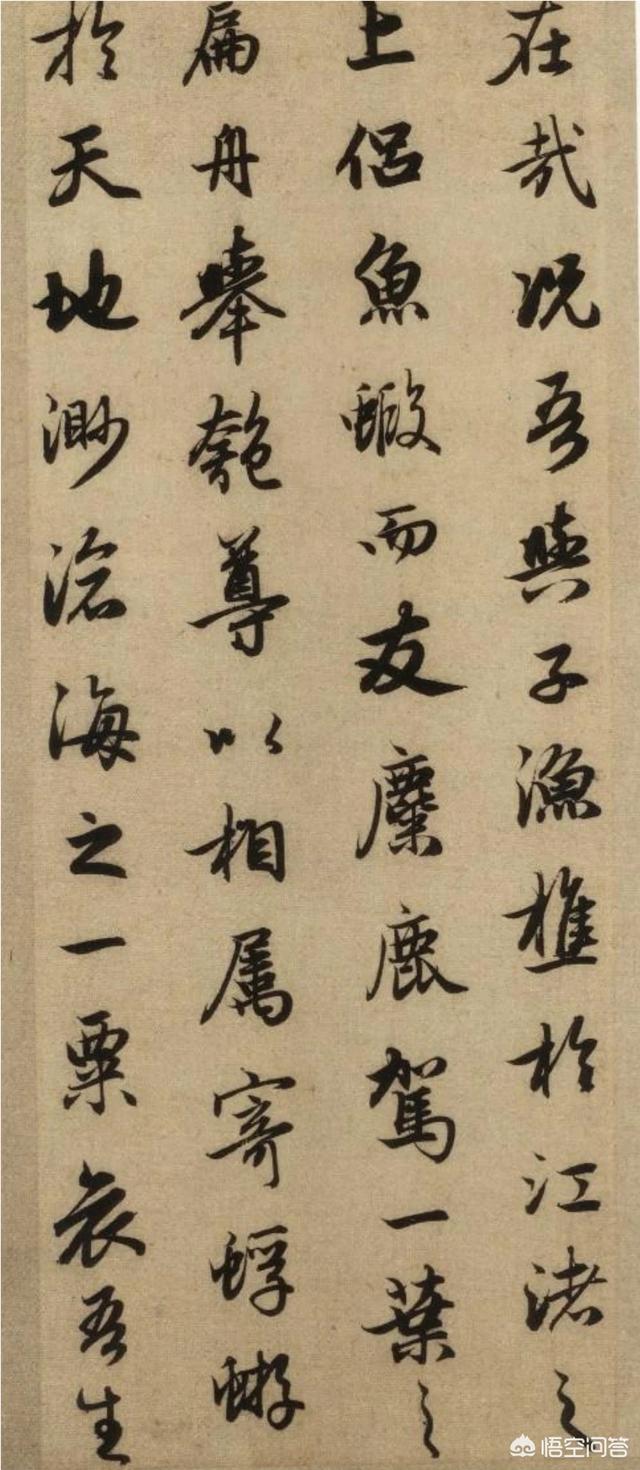 在哉况吾與子漁樵於江渚之
上侶魚蝦而友麋鹿駕一葉之
扁舟舉匏尊以相属寄蜉蝣
於天地渺滄海之一粟哀吾生
悟空问答